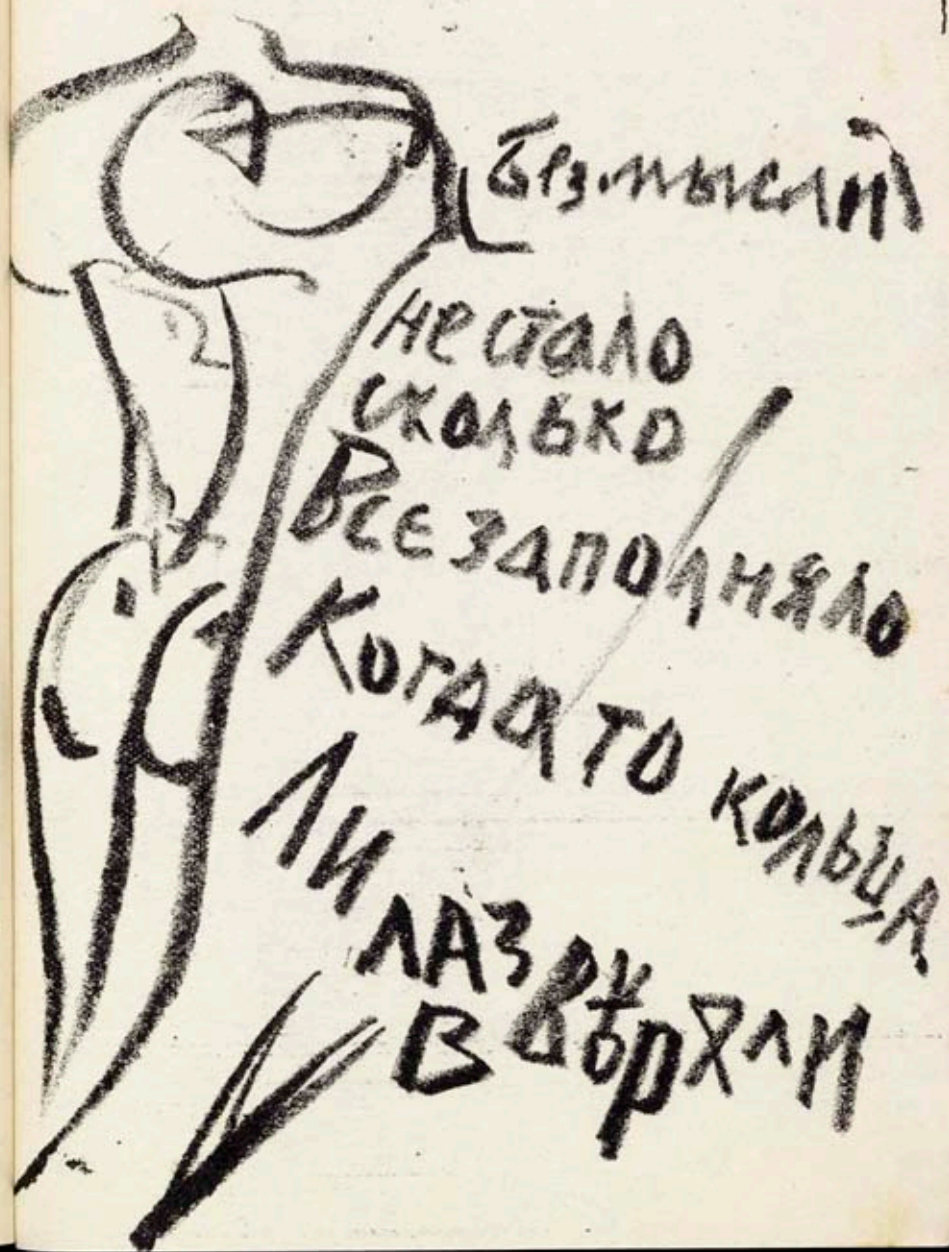 Без мыслий
не стало
сколько
Все заполняло
Когда то кольца
Ли
лазури
В вѣрхли